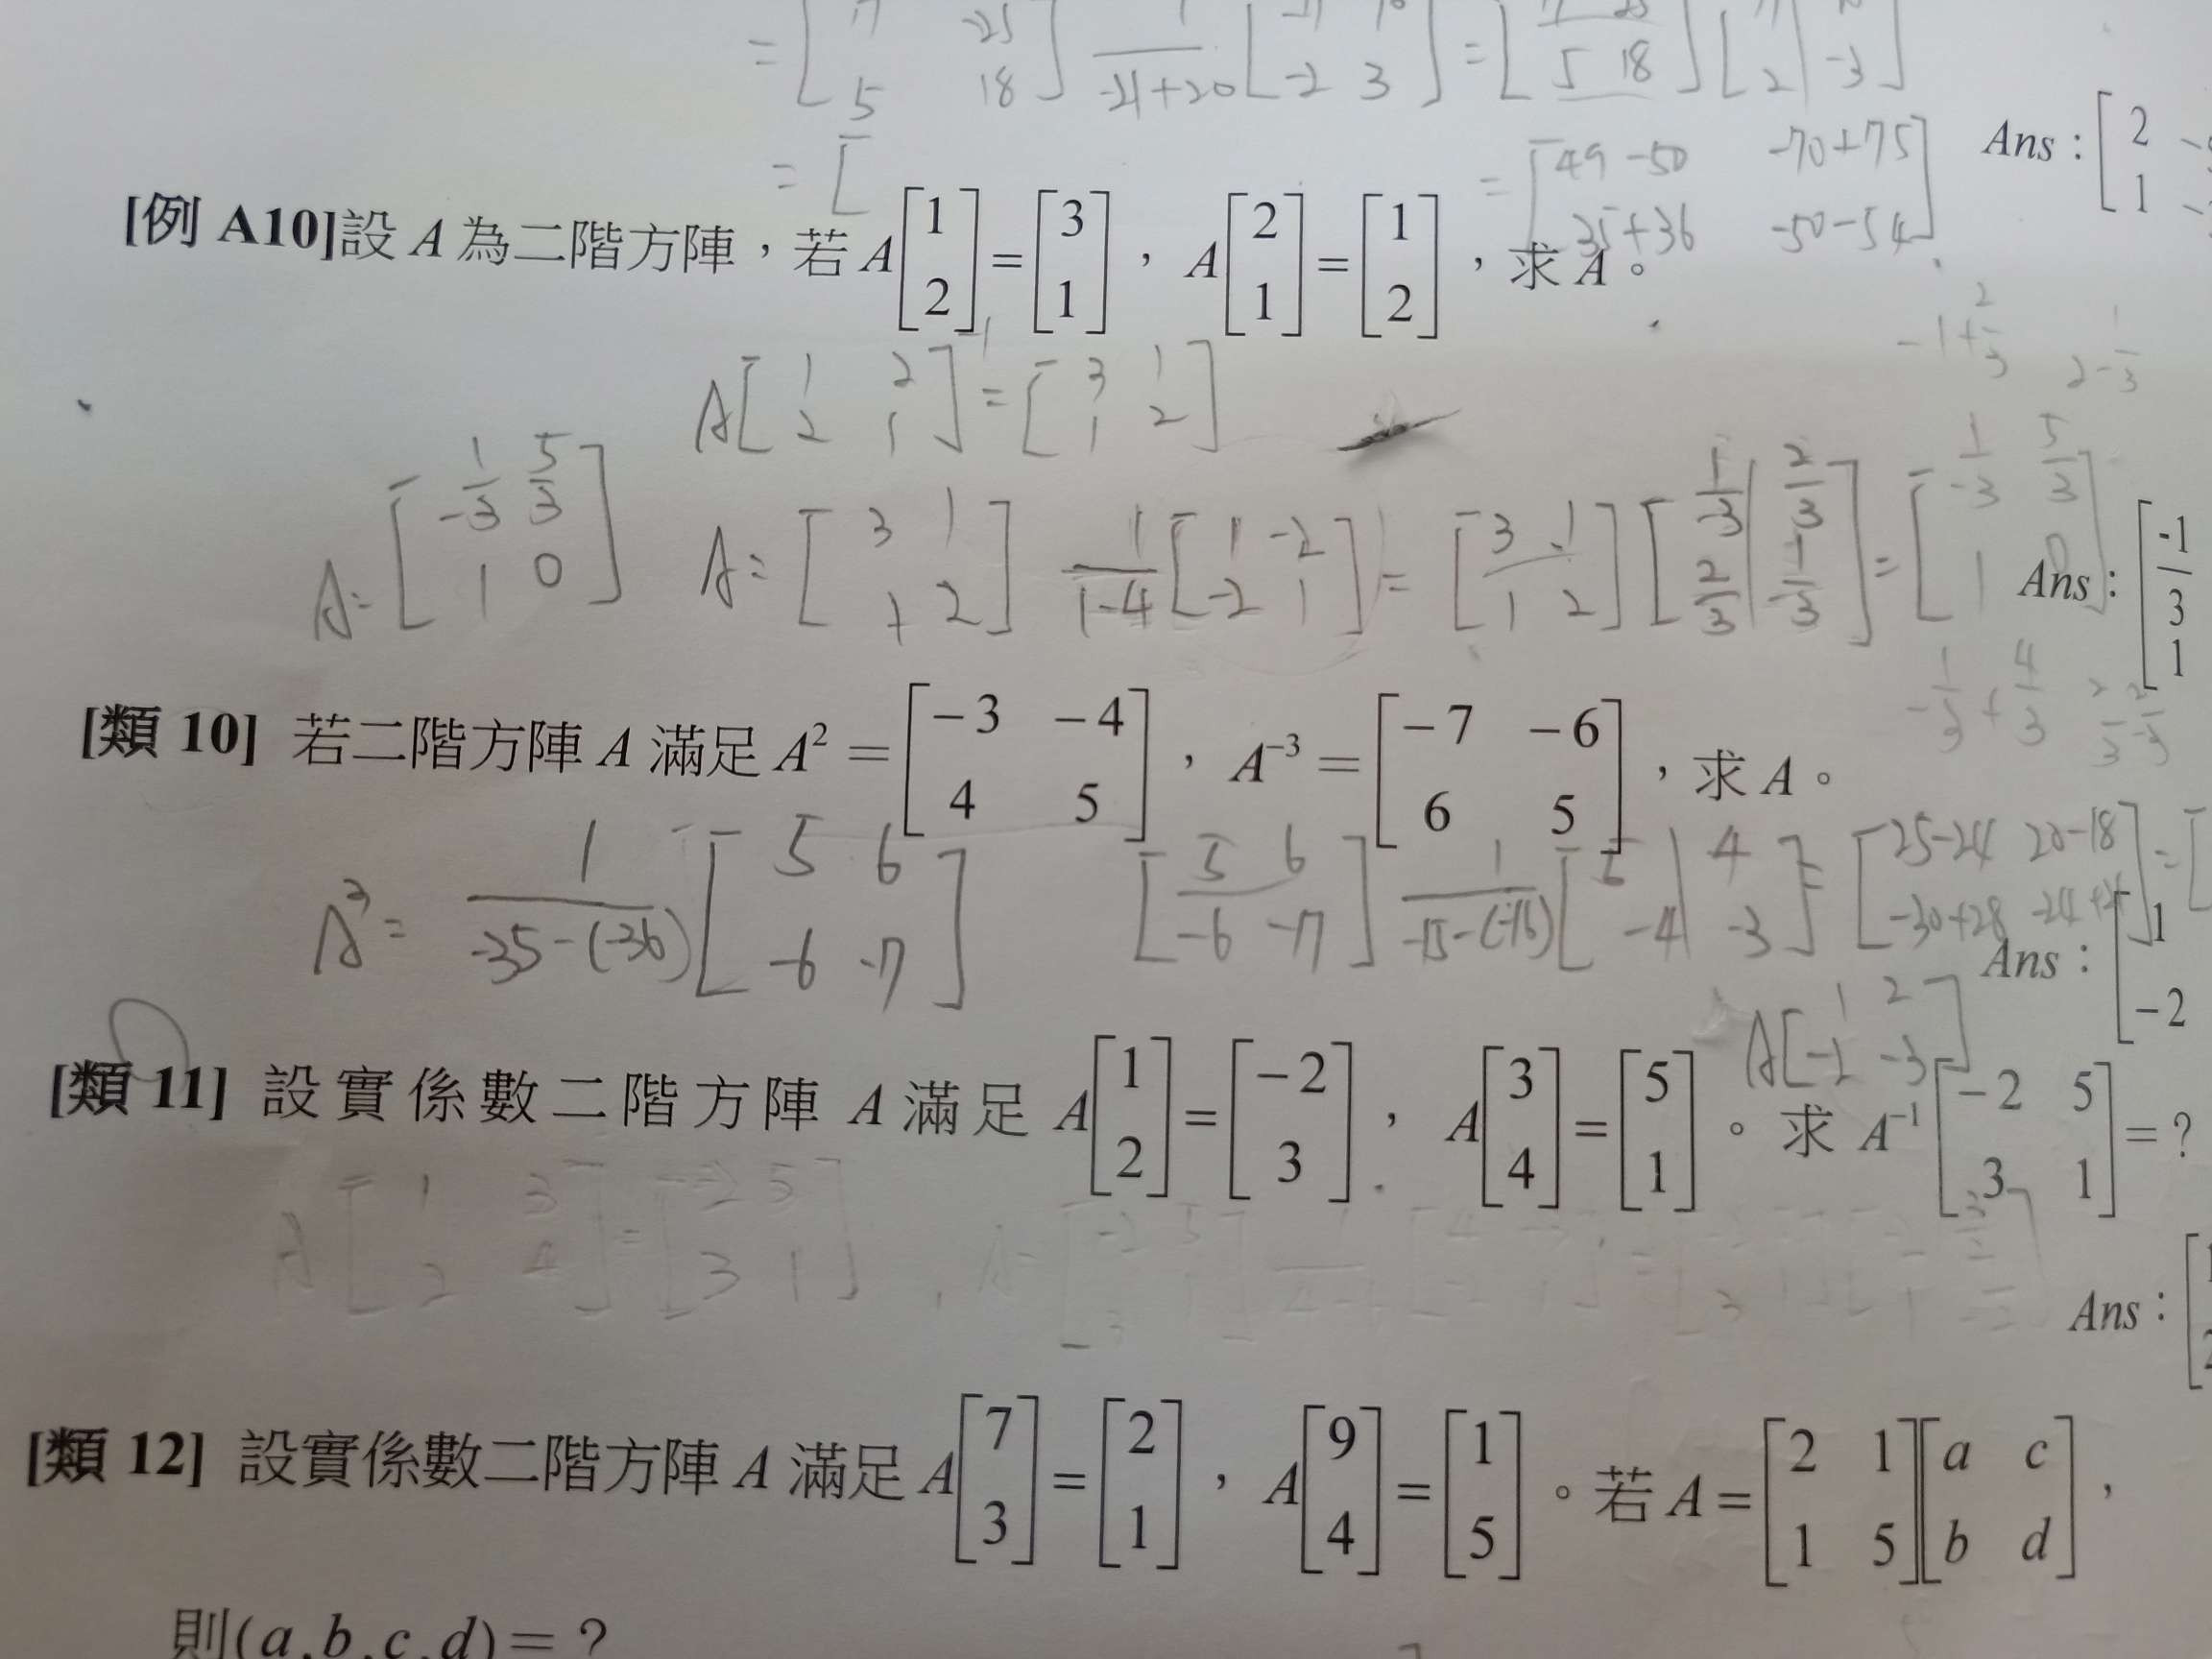 = [ 17 -25 ; 5 18 ] 1/(-21+20) [ -7 10 ; -2 3 ] = [ 17 25 ; 5 18 ] [ 7 ; 2 -3 ]
= [ = [ 49-50 -70+75 ; 35+36 -50-54 ] Ans : [ 2 ; 1
[例 A10]設 A 為二階方陣，若 A[ 1 ; 2 ] = [ 3 ; 1 ]，A[ 2 ; 1 ] = [ 1 ; 2 ]，求 A。
-1+2/3 2-1/3
A[ 1 2 ; 2 1 ] = [ 3 1 ; 1 2 ]
A= [ -1/3 5/3 ; 1 0 ] A= [ 3 1 ; 1 2 ] 1/(1-4) [ 1 -2 ; -2 1 ] = [ 3 1 ; 1 2 ] [ 1/-3 2/3 ; 2/3 -1/3 ] = [ -1/3 5/3 ; 1 0 ] Ans : [ -1/3 ; 1
-1/3+4/3 2/3-2/3
[類 10] 若二階方陣 A 滿足 A² = [ -3 -4 ; 4 5 ]，A⁻³ = [ -7 -6 ; 6 5 ]，求 A。
A³= 1/(-35-(-36)) [ 5 6 ; -6 -7 ] [ 5 6 ; -6 -7 ] 1/(-15-(-16)) [ 5 4 ; -4 -3 ] = [ 25-24 20-18 ; -30+28 ] = [
Ans : [ 1 ; -2
A[ 1 2 ; -2 -3 ]
[類 11] 設實係數二階方陣 A 滿足 A[ 1 ; 2 ] = [ -2 ; 3 ]，A[ 3 ; 4 ] = [ 5 ; 1 ]。求 A⁻¹[ -2 5 ; 3 1 ] = ?
A [ 1 3 ; 2 4 ] = [ -2 5 ; 3 1 ]
Ans : [ 1 ; 2
[類 12] 設實係數二階方陣 A 滿足 A[ 7 ; 3 ] = [ 2 ; 1 ]，A[ 9 ; 4 ] = [ 1 ; 5 ]。若 A = [ 2 1 ; 1 5 ][ a c ; b d ]，
則(a,b,c,d) = ?